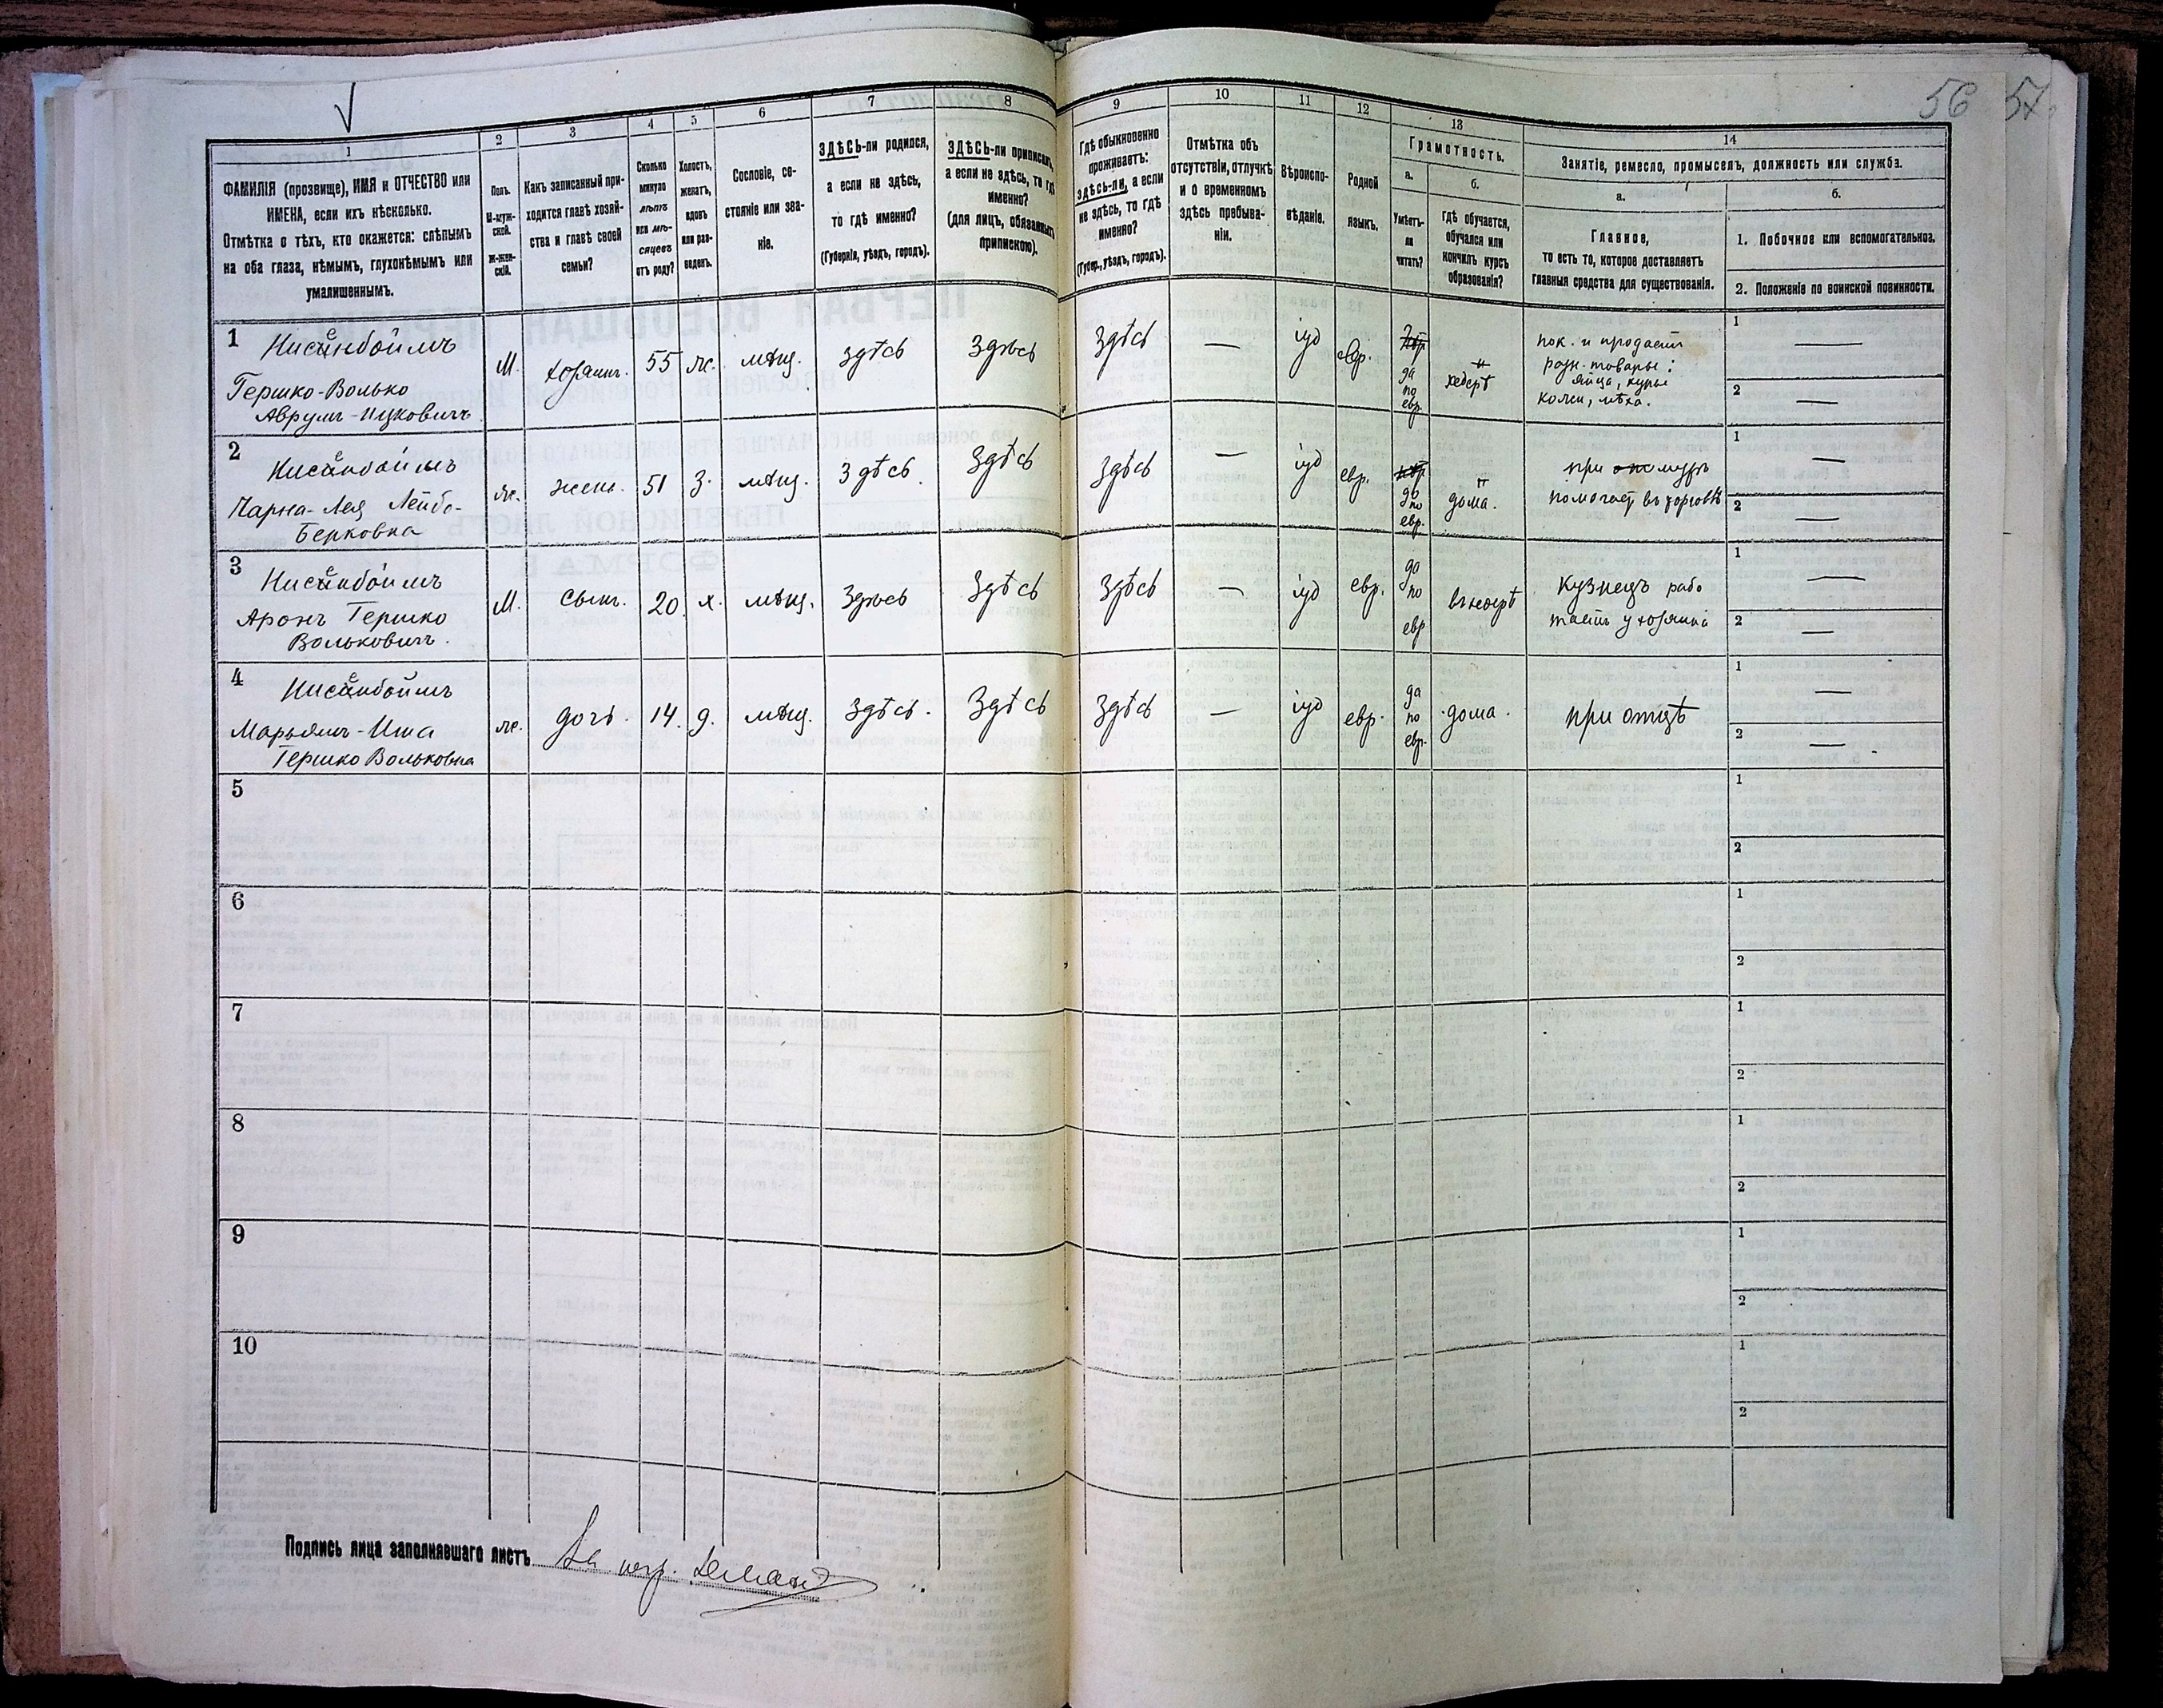 56 57
1
ФАМИЛІЯ (прозвище), ИМЯ и ОТЧЕСТВО или
ИМЕНА, если ихъ нѣсколько.
Отмѣтка о тѣхъ, кто окажется: слѣпымъ
на оба глаза, нѣмымъ, глухонѣмымъ или
умалишеннымъ.
2
Полъ.
М-муж-
ской.
Ж-жен-
скій.
3
Какъ записанный при-
ходится главѣ хозяй-
ства и главѣ своей
семьи?
4
Сколько
минуло
лѣтъ
или мѣ-
сяцевъ
отъ роду?
5
Холостъ,
женатъ,
вдовъ
или раз-
веденъ.
6
Сословіе, со-
стояніе или зва-
ніе.
7
ЗДѢСЬ-ли родился,
а если не здѣсь,
то гдѣ именно?
(Губернія, уѣздъ, городъ).
8
ЗДѢСЬ-ли приписанъ,
а если не здѣсь, то гдѣ
именно?
(для лицъ, обязанныхъ
припискою).
9
Гдѣ обыкновенно
проживаетъ:
ЗДѢСЬ-ли, а если
не здѣсь, то гдѣ
именно?
(Губер., уѣздъ, городъ).
10
Отмѣтка объ
отсутствіи, отлучкѣ
и о временномъ
здѣсь пребыва-
ніи.
11
Вѣроиспо-
вѣданіе.
12
Родной
языкъ.
13
Грамотность.
а.
Умѣетъ-
ли
читать?
б.
гдѣ обучается,
обучался или
кончилъ курсъ
образованія?
14
Занятіе, ремесло, промыселъ, должность или служба.
а.
Главное,
то есть то, которое доставляетъ
главныя средства для существованія.
б.
1. Побочное или вспомогательное.
2. Положеніе по воинской повинности.
1
Нисенбоймъ
Гершко-Волько
Аврумъ-Ицковичъ
М.
хозяинъ.
55
ж.
мѣщ.
здѣсь
здѣсь
здѣсь
—
іуд
евр.
да
по
евр.
хедерѣ
пок. и продаетъ
разн. товары:
яйца, куры
кожи, мѣха.
1 —
2 —
2
Нисенбоймъ
Чарна-Лея Лейбо-
Берковна
ж.
жена.
51
з.
мѣщ.
здѣсь
здѣсь
здѣсь
—
іуд
евр.
да
по
евр.
дома.
при мужѣ
помогает въ торговлѣ
1 —
2 —
3
Нисенбоймъ
Аронъ Гершко
Вольковичъ.
М.
сынъ.
20
х.
мѣщ.
здѣсь
здѣсь
здѣсь
—
іуд
евр.
да
по
евр
въ хедерѣ
Кузнецъ рабо
таетъ у хозяина
1 —
2 —
4
Нисенбоймъ
Марьямъ-Ита
Гершко Вольковна
ж.
дочь.
14.
д.
мѣщ.
здѣсь.
здѣсь
здѣсь
—
іуд
евр.
да
по
евр.
дома.
при отцѣ
1 —
2 —
5
1
2
6
1
2
7
1
2
8
1
2
9
1
2
10
1
2
Подпись лица заполнявшаго листъ